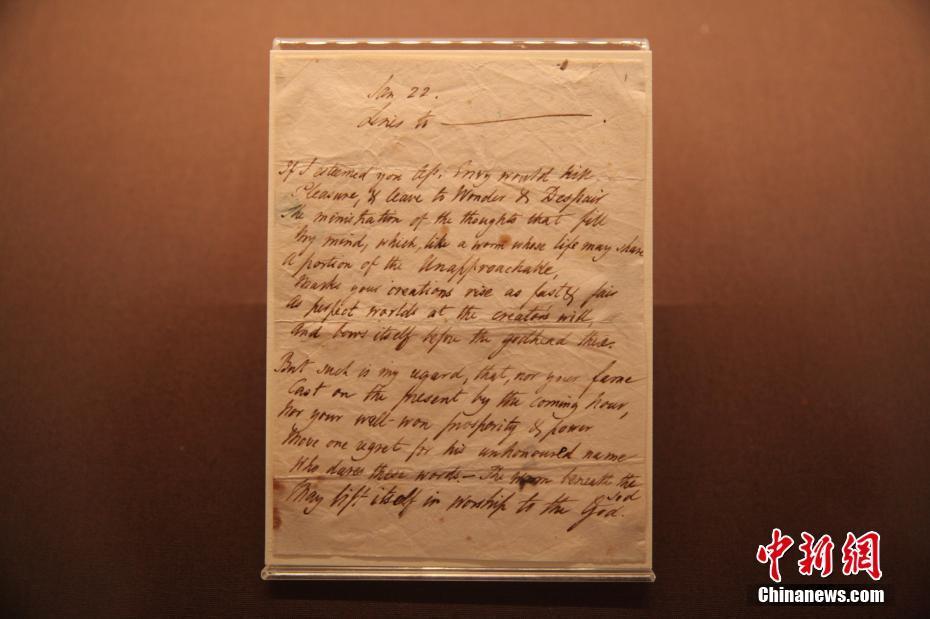 Jan 22.
Lines to ————.
If I esteemed you less, Envy would kill
Pleasure, & leave to Wonder & Despair
The ministration of the thoughts that fill
My mind, which, like a worm whose life may share
A portion of the Unapproachable,
Marks your creations rise as fast & fair
As perfect worlds at the creator's will,
And bows itself before the godhead there.
But such is my regard, that, nor your fame
Cast on the present by the coming hour,
Nor your well-won prosperity & power
Move one regret for his unhonoured name
Who dares these words.— The worm beneath the
sod
May lift itself in worship to the God.
中新網
Chinanews.com